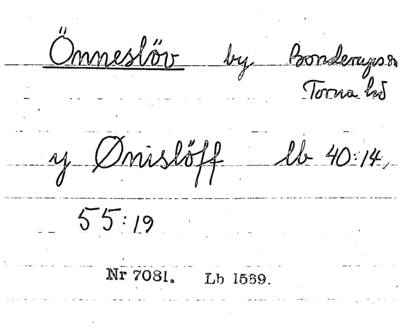 Önneslöv by Bonderups sn
Torna hd
y Ønislöff lb 40:14,
55:19
Nr 7081. Lb 1569.